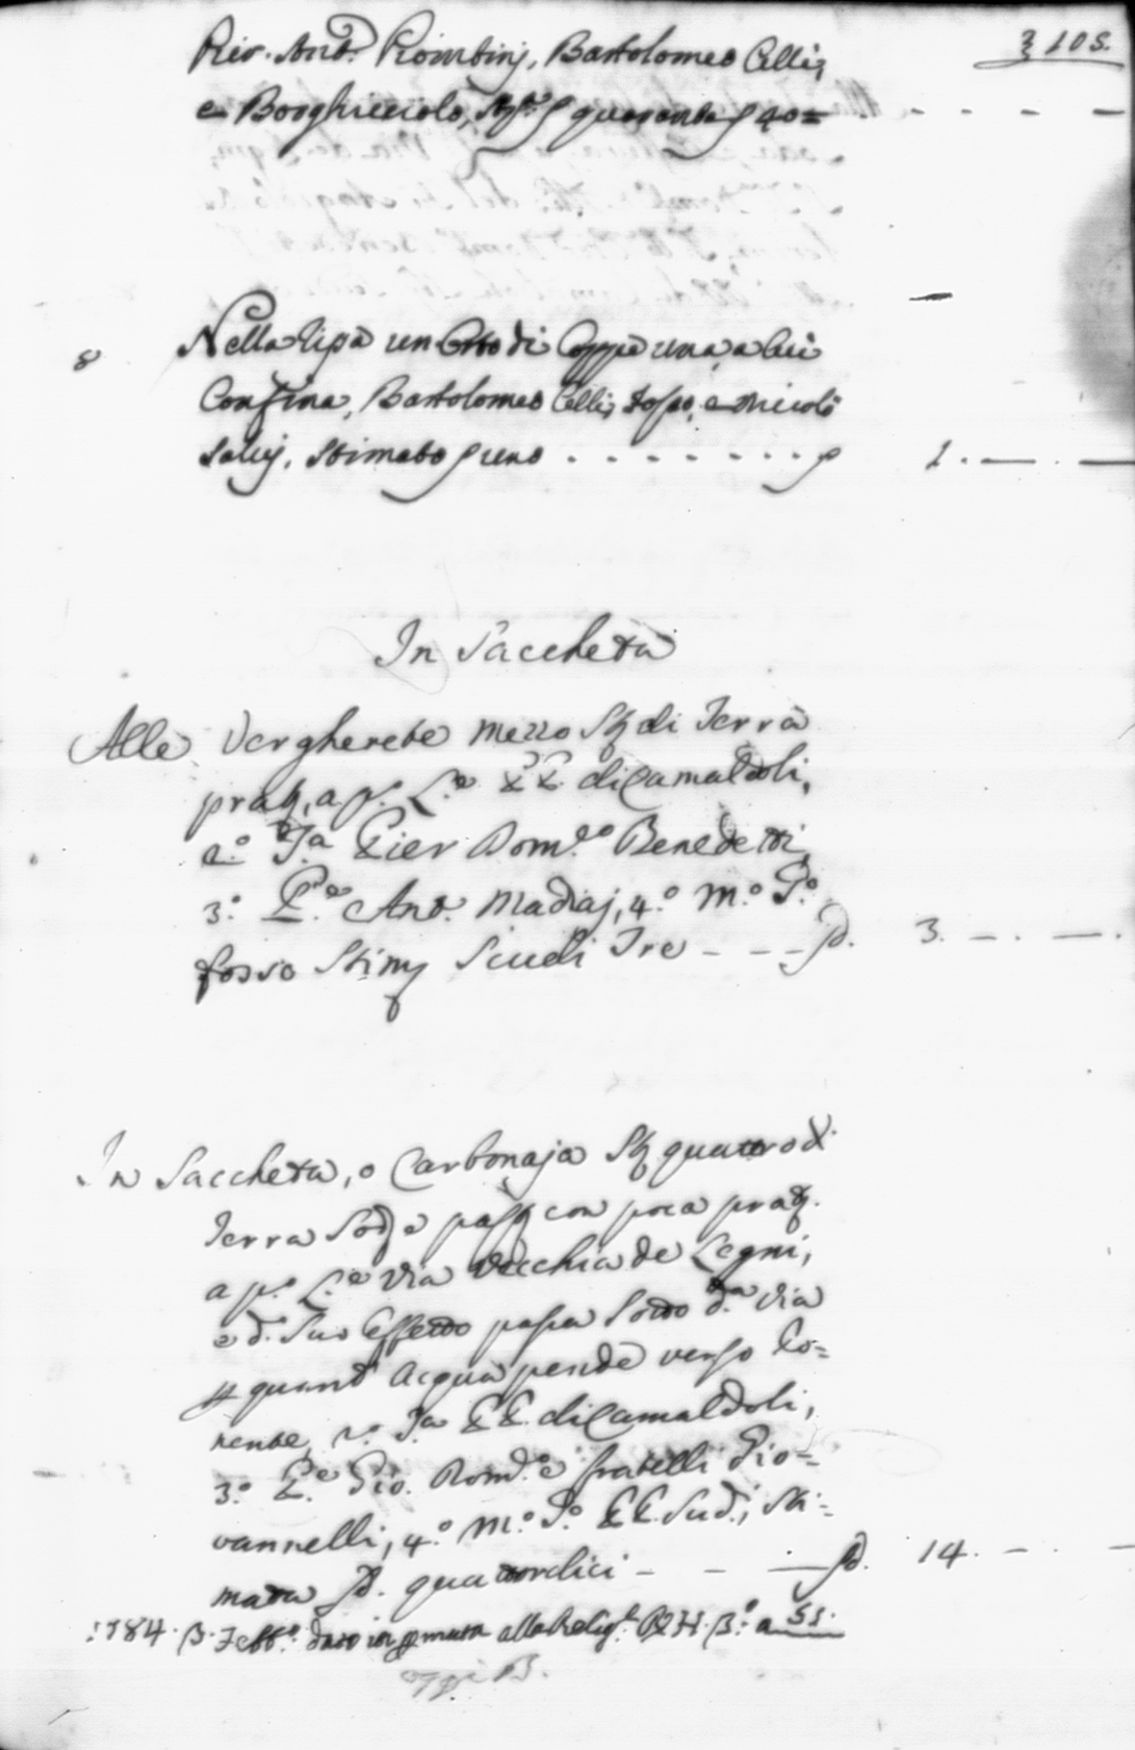 105.
Riv. Ant.º Piombinj, Bartolomeo Celli,
e Borghicciolo, quaranta 40=
8 Nella Ripa un Orto di Coppe una, a cui
Confina, Bartolomeo Celli, fosso, e Niccolò
Salvj, Stimato uno . . . . . . . 1. — . —
In Saccheta
Alle Vergherete mezzo di Terra
prat, a p.º L.e diCamaldoli,
2.º P.a Pier Dom.co Benedetti,
3.º P.e Ant.º Madiaj, 4.º M.º P.º
fosso Stim Scudi Tre - - - 3. — . — .
In Saccheta, o Carbonaja quattro di
Terra Sod, e past con poca prat.
a p.º L.e Via Vecchia de Legni,
e d.º Suo Effetto passa sotto d.a via
p quant' Acqua pende verso Po=
nente, 2.º P.a diCamaldoli,
3.º P.e Gio. Dom.co e fratelli Gio=
vannelli, 4.º M.º P.º Sud.i, Sti=
mata quattordici - - — 14. — . —
1784. Febb.º dato in pmuta alla a 55.